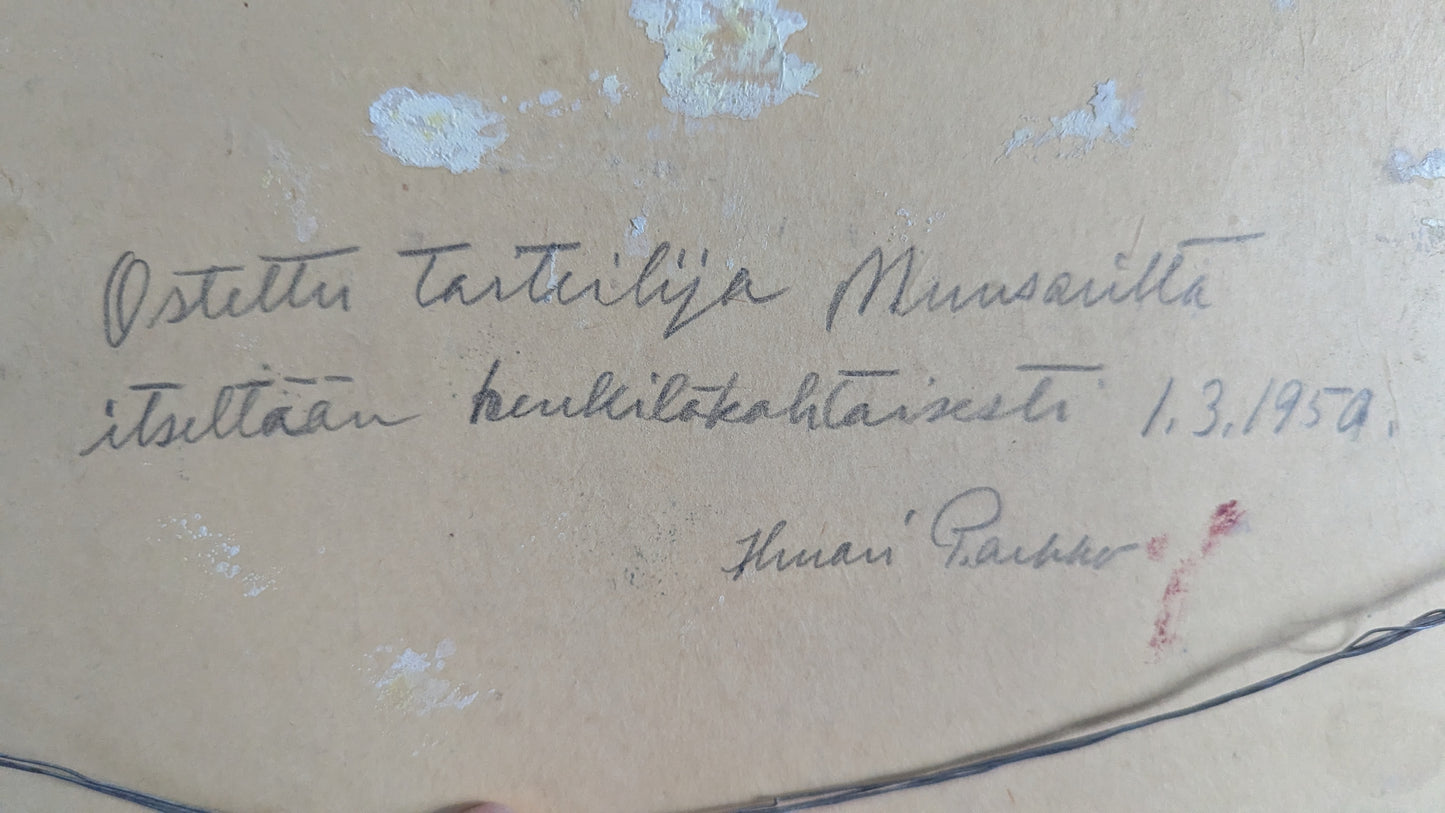 Ostettu taiteilija Muusarilta
itseltään henkilökohtaisesti 1.3.1950.
Ilmari Parkko